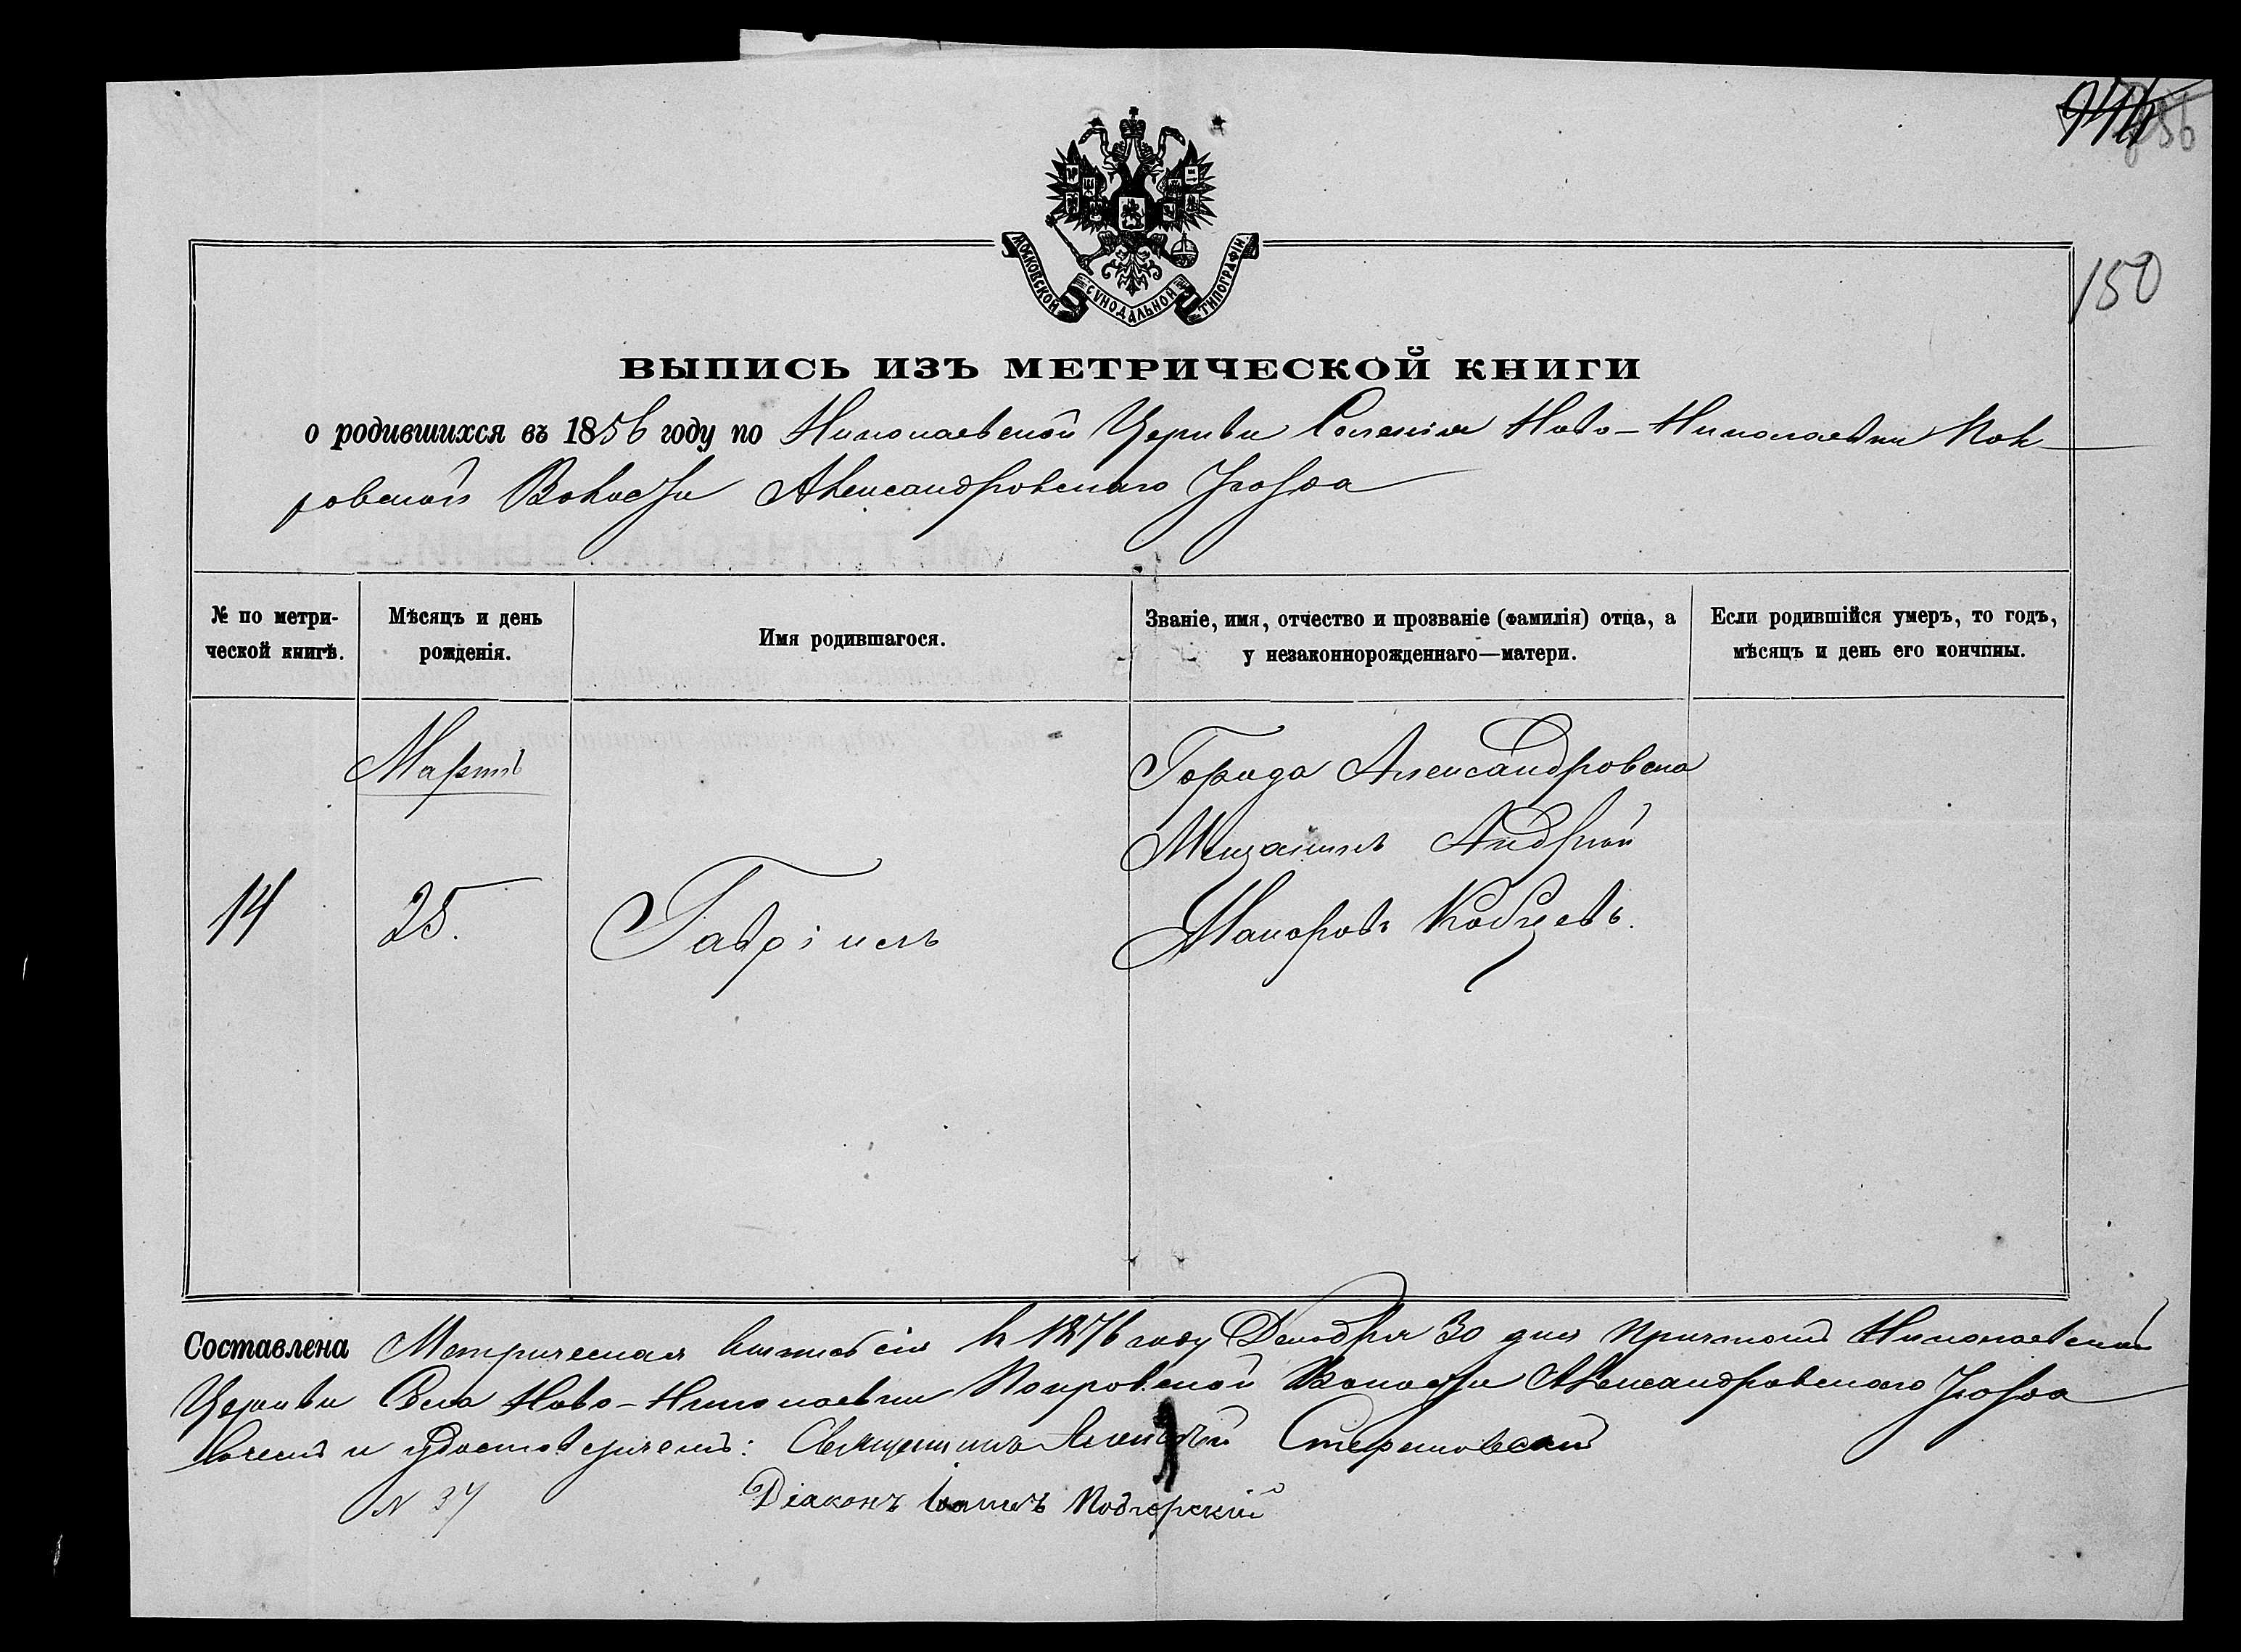 944 256
150
МОСКОВСКОЙ СѴНОДАЛЬНОЙ ТИПОГРАФІИ.
ВЫПИСЬ ИЗЪ МЕТРИЧЕСКОЙ КНИГИ
о родившихся въ 1856 году по Николаевской Церкви Селенія Ново-Николаевки Пок-
ровской Волости Александровскаго Уезда
№ по метри-
ческой книгѣ.
Мѣсяцъ и день
рожденія.
Имя родившагося.
Званіе, имя, отчество и прозваніе (фамилія) отца, а
у незаконнорожденнаго—матери.
Если родившійся умеръ, то годъ,
мѣсяцъ и день его кончины.
Мартъ
Города Александровска
Мещанинъ Андрей
14 25. Гавріилъ Макаровъ Кобцевъ.
Составлена Метрическая выпись сія въ 1876 году Декабря 30 дня Причтомъ Николаевской
Церкви Села Ново-Николаевки Покровской Волости Александровскаго Уезда
въ чемъ и удостоверяемъ: Священникъ Алексей
N 37 Діаконъ Подгорскій